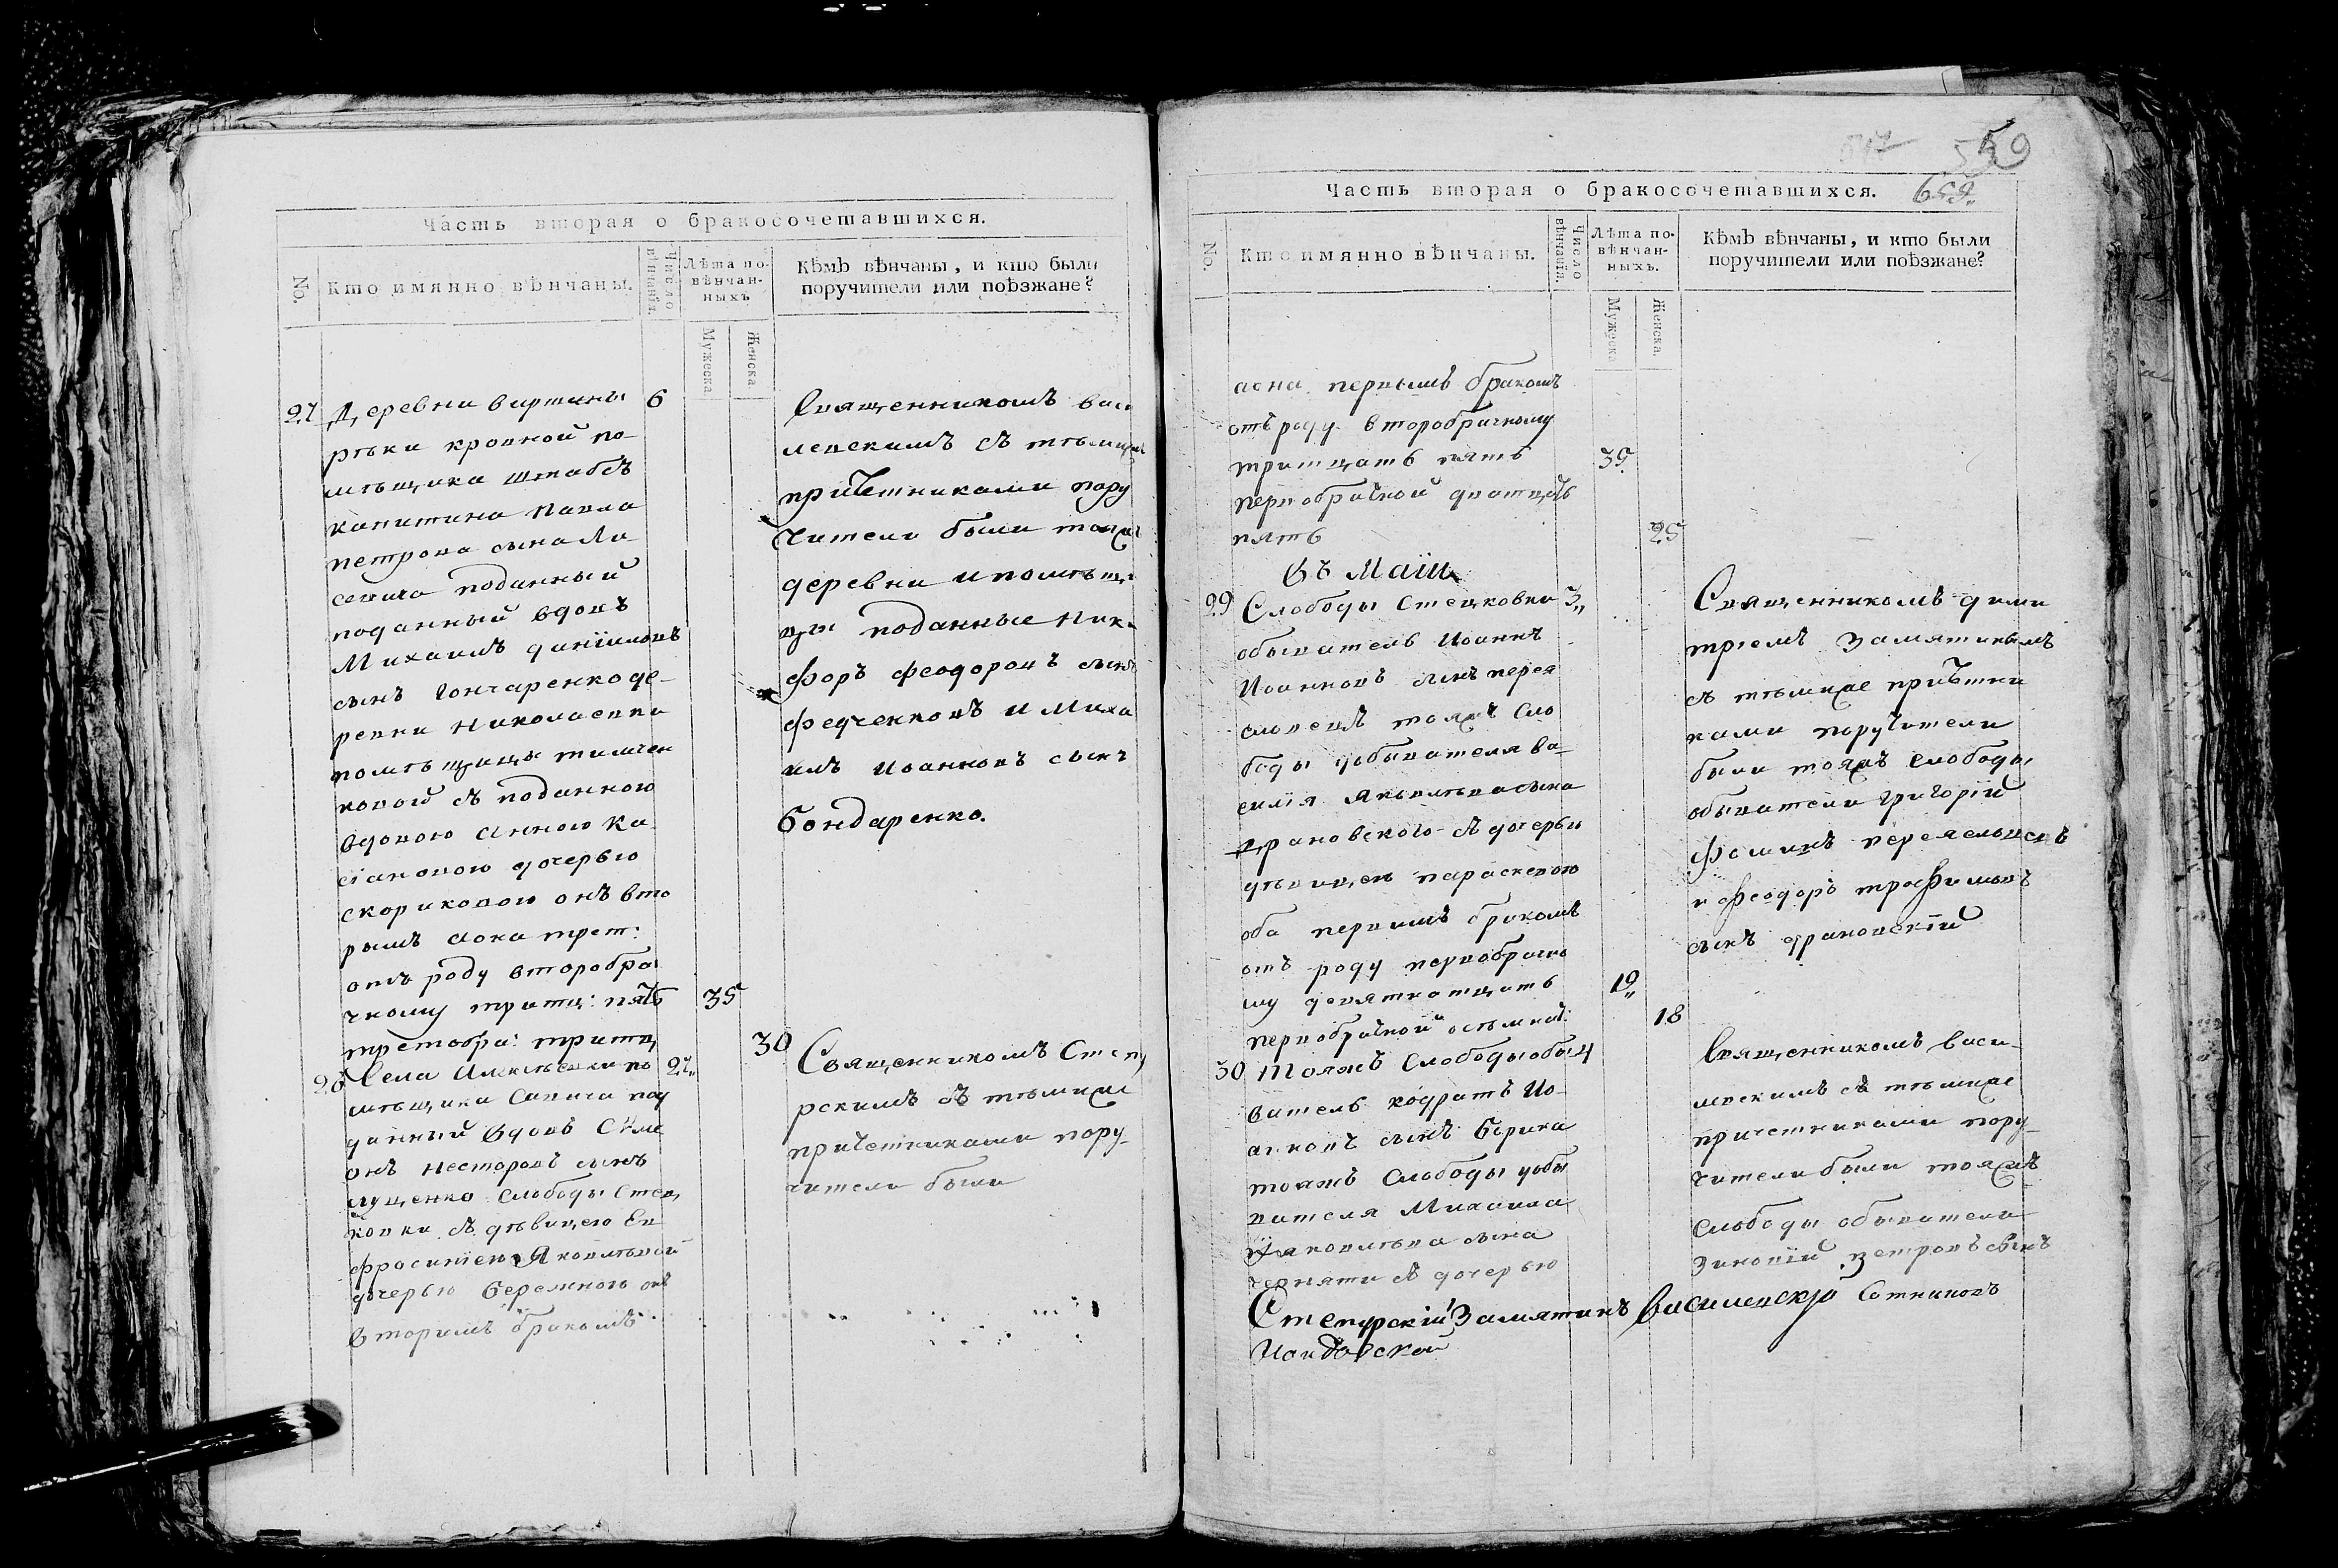 Часть вторая о бракосочетавшихся.
No.
Кто имянно вѣнчаны.
Число вѣнчанія.
Лѣта по-
вѣнчан-
ныхъ
Мужеска
Женска
Кѣмъ вѣнчаны, и кто были
поручители или поѣзжане?
27 Деревни 6
рѣки кровной по-
мѣщика штабсъ
капитана Павла
петрова сына
поданный
поданный вдовъ
Михаилъ даніиловъ
сынъ гончаренко де-
ревни Николаевки
помѣщицы
съ поданною
вдовою Анною Ка-
сіановою дочерью
скориковою онъ вто
рымъ аона трет:
отъ роду второбра
чному тритц: пять 35
третобра: тритц 30
Священникомъ васи
левскимъ съ тѣмиже
причетниками пору
чители были тояже
деревни и помѣщи
цы поданные Ники
форъ феодоровъ сынъ
федченковъ и Миха
илъ иоанновъ сынъ
бондаренко.
28 Села Алексѣевки по 27
мѣщика Савича под
данный вдовъ Симе
онъ несторовъ сынъ
луценко слободы Стец
ковки съ дѣвицею Ев
фросиніею Яковлевой
дочерью бережною онъ
вторимъ бракомъ
Священникомъ Степу
рскимъ съ тѣмиже
причетниками пору-
чители были
59
Часть вторая о бракосочетавшихся. 659.
No.
Кто имянно вѣнчаны.
Число вѣнчанія.
Лѣта по-
вѣнчан-
ныхъ.
Мужеска
Женска.
Кѣмъ вѣнчаны, и кто были
поручители или поѣзжане?
аона первымъ бракомъ
отъ роду второбрачному
тритцать пять 35
первобрачной дватцать
пять 25
Въ Маіи
29 Слободы Стецковки 3
обыватель Иоаннъ
Иоанновъ сынъ перея
словецъ тояжъ Сло
боды обывателя ва-
силія Яковлѣва сына
драновского съ дочерью
дѣвицею параскевою
оба первимъ бракомъ
отъ роду первобрачно
му девятнатцать 19
первобрачной осьмнат: 18
Священникомъ дими
тріемъ Замятинымъ
съ тѣмиже причетни
ками поручители
были тояжъ слободы
обыватели григорій
фоминъ переяславецъ
и феодоръ трофимовъ
сынъ драновскій
30 тояжъ Слободы обы 4
ватель кодратъ Ио-
анновъ сынъ берика
тояжъ Слободы обы
вателя Михаила
Яковлѣва сына
черняти съ дочерью
Священникомъ васи-
левскимъ съ тѣмиже
причетниками пору-
чители были тояжъ
слободы обыватели
зиновій петровъ сынъ
Сотниковъ
Степурскій Замятинъ Василевскій